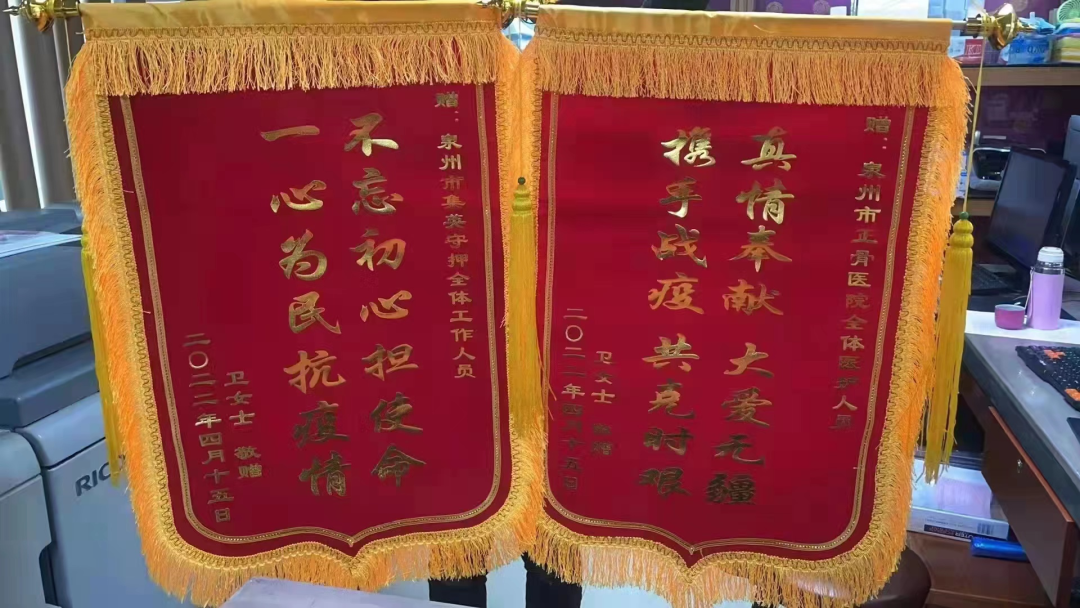 赠：泉州市集英守押全体工作人员
不忘初心担使命
一心为民抗疫情
卫女士 敬赠
二〇二二年四月十五日
赠：泉州市正骨医院全体医护人员
真情奉献 大爱无疆
携手战疫 共克时艰
卫女士 敬赠
二〇二二年四月十五日
RICOH